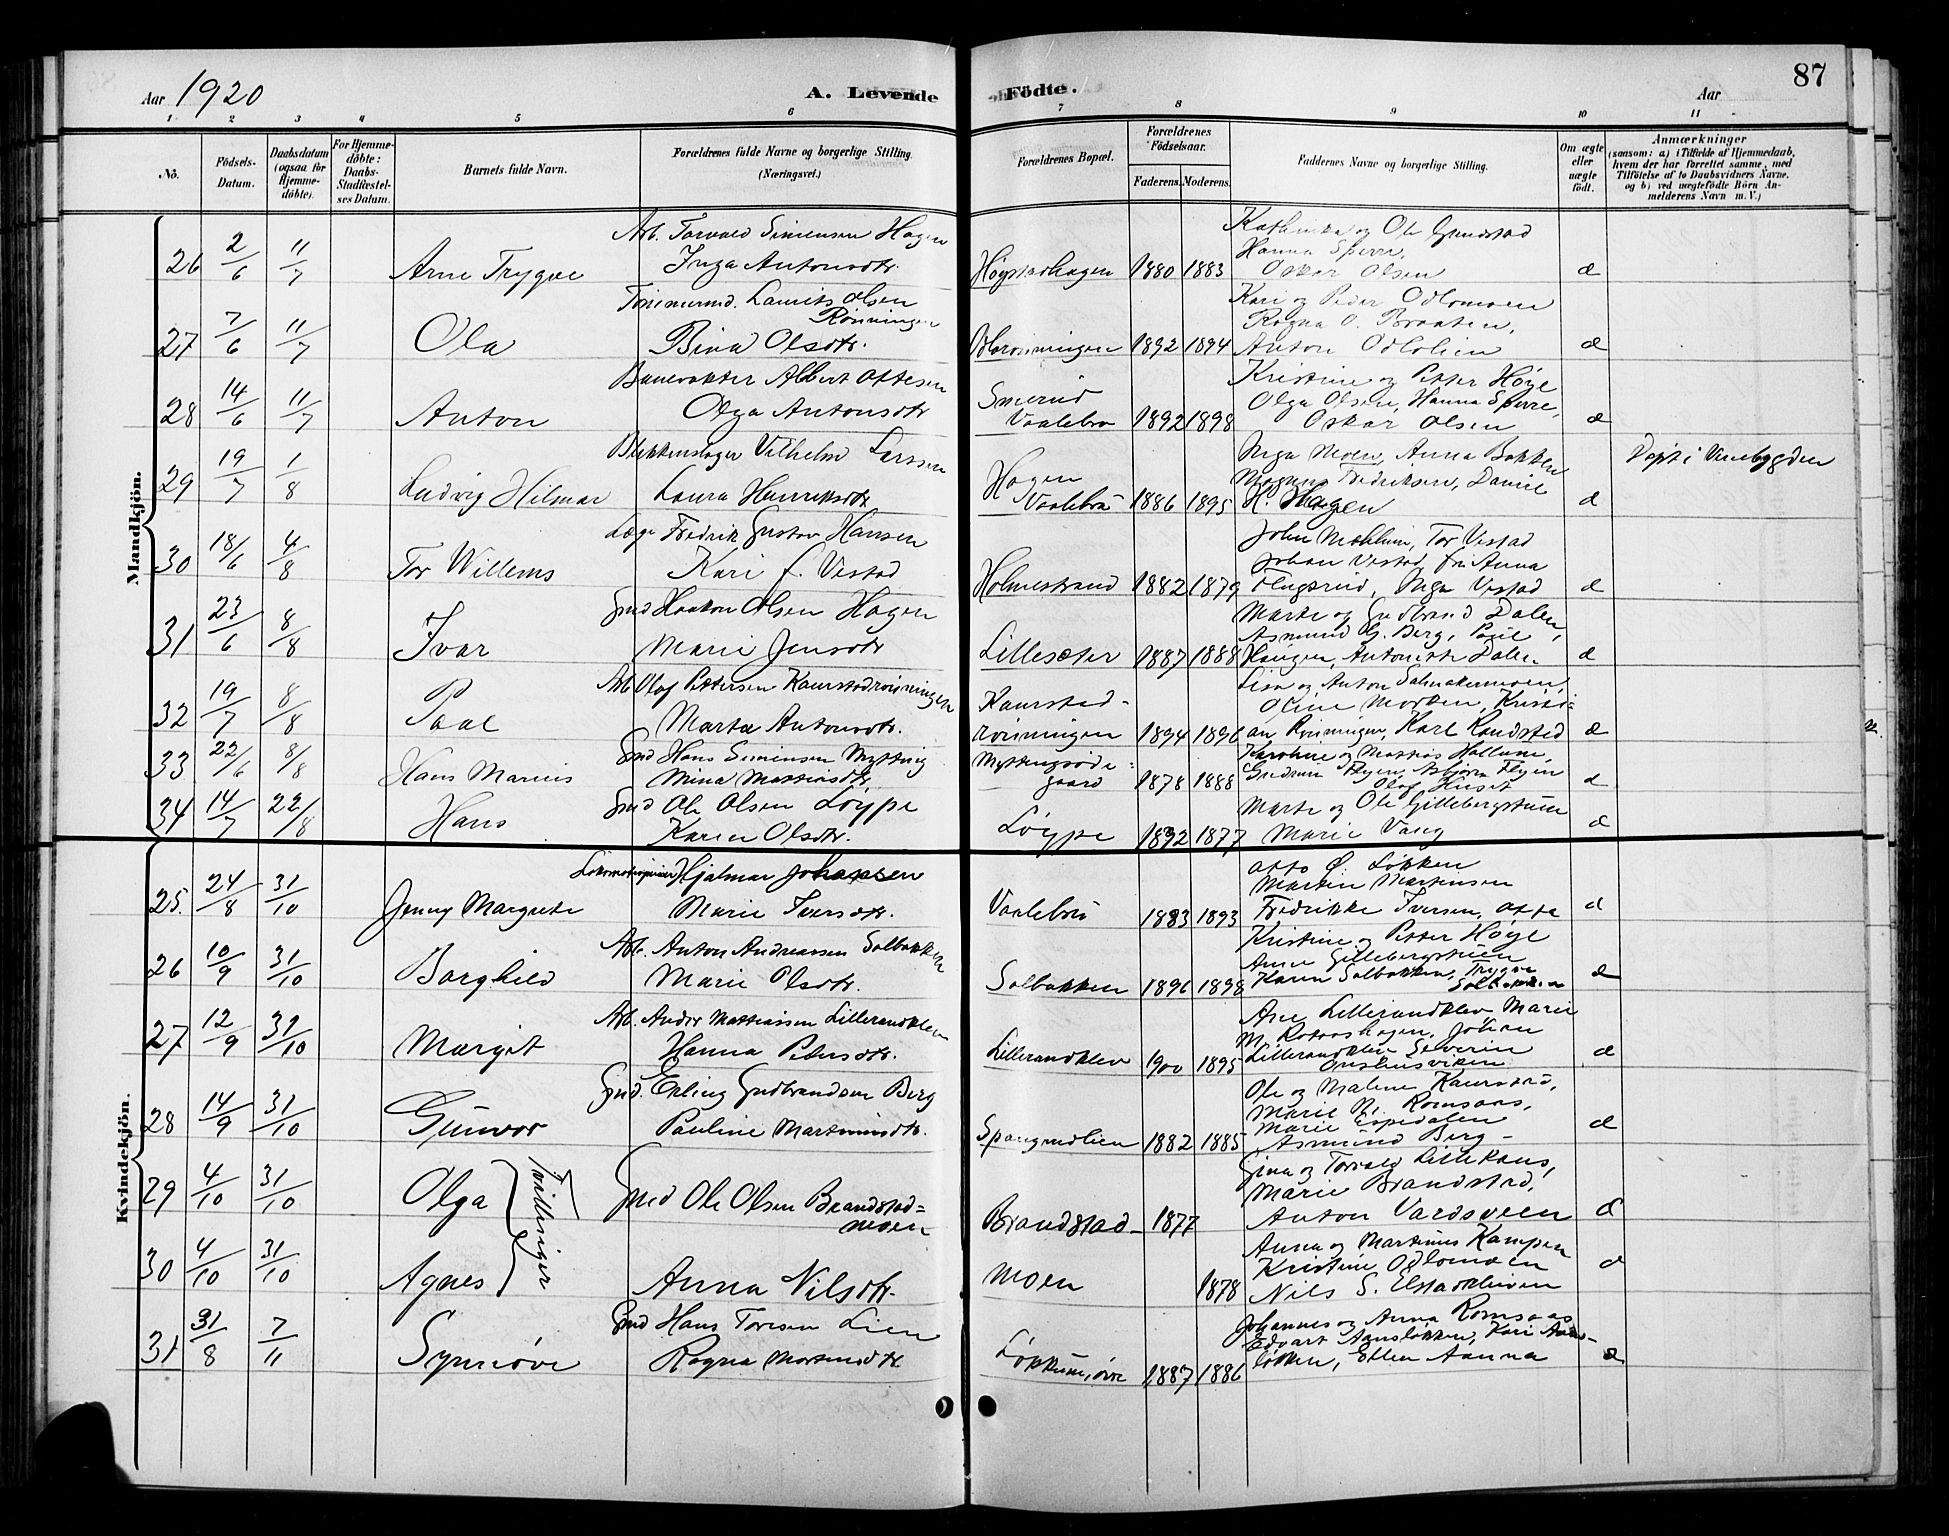 87
Aar 1920 A. Levende Fødte. Aar
1 2 3 4 5 6 7 8 9 10 11
No. Fødsels-Datum. Daabsdatum (ogsaa for Hjemmedøbte). For Hjemmedøbte: Daabs-Stadfæstelses Datum. Barnets fulde Navn. Forældrenes fulde Navne og borgerlige Stilling. (Næringsvei.) Forældrenes Bopæl. Forældrenes Fødselsaar. Faderens. Moderens. Faddernes Navne og borgerlige Stilling. Om ægte eller uægte født. Anmærkninger (saasom: a) i Tilfælde af Hjemmedaab, hvem der har forrettet samme, med Tilføielse af to Daabsvidners Navne, og b) ved uægtefødte Børn Anmelderens Navn m. V.)
Mandkjøn.
Arb. Torvald Simensen Hagen
26 2/6 11/7 Arne Trygve Inga Antonsdtr. 1880 1883
Kathinka og Ole Grundstad
Hanna Sperre,
Oskar Olsen æ
Tømmermd. Laurits Olsen
Rønningen
27 7/6 11/7 Ola Bina Olsdtr. 1892 1894
Kari og Peder Odlomoen
Ragna O. Braaten,
Anton Odlolien æ
Banevokter Albert Ottesen
28 14/6 11/7 Anton Olga Antonsdtr
Smerud
Vaalebro 1892 1898
Kristine og Petter Høye
Olga Olsen, Hanna Sperre,
Oskar Olsen æ
Blikkenslager Vilhelm Larssen
29 19/7 1/8 Ludvig Hilmar Laura Henriksdtr
Hagen
Vaalebro 1886 1895
Inga Moen, Anna Bakken
Magnus Fredriksen, Daniel
H. Hagen æ Døpt i Venebygden
Læge Fredrik Gustav Hansen
30 18/6 4/8 Tor Willems Kari f. Vestad Holmestrand 1882 1879
John Mæhlum, Tor Vestad
Johan Vestad, fru Anna
Inga Vestad æ
Gmd Haakon Olsen Hagen
31 23/6 8/8 Ivar Marie Jensdtr Lillesæter 1887 1888
Marte og Gudbrand Dalen,
Asmund G. Berg, Paul
Haugen, Antonette Dalen æ
Arb Olaf Pettersen Kaurstadrønningen
32 19/7 8/8 Paal Marta Antonsdtr.
Kaurstad-
rønningen 1894 1896
Lisa og Anton
Oline Morken, Kristi-
an Rønningen, Karl Randstad æ
Gmd Hans Simensen Mytting
33 22/6 8/8 Hans Marius Mina Mattiasdtr. 1878 1888
Karoline og Mattias Hallum,
Gudrun Flyen, Asbjørn Flyen
Olaf Huset æ
Gmd Ole Olsen Løype
34 14/7 22/8 Hans Karen Olsdtr. Løype 1892 1877
Marte og Ole Gillebergstuen
Marie Vang æ
Kvindekjøn.
Hjalmar Johansen
25. 24/8 31/10 Jenny Margrete Marie Iversdtr. Vaalebro 1883 1893
Otto Ø. Løkken
Martin Martinsen
Fredrikke Iversen, Otta æ
Arb. Anton Andreassen Solbakken
26 10/9 31/10 Borghild Marie Olsdtr. Solbakken 1896 1898
Kristine og Petter Høye
Anne Gillebergstuen
Karen Solbakken, Trygve
Solbakken æ
Arb. Anders Mattiassen Lillerandklev
27 12/9 31/10 Margit Hanna Pedersdtr. Lillerandklev 1900 1895
Ane Lillerandklev Marie
M. Romsaashagen, Johan
Lillerandklev Severin
æ
Gmd. Erling Gudbrandsen Berg
28 14/9 31/10 Gunvor Pauline Martinusdtr. 1882 1885
Ole og Malene Kaurstad,
Marie N. Romsaas,
Marie Espedalen
Asmund Berg - æ
29 4/10 31/10 Olga Tvillinger
Gmd Ole Olsen Brandstad=
moen
Brandstad- 1877
Gina og Torvald Lillekaus,
Marie Brandstad,
Anton Vardsveen æ
30 4/10 31/10 Agnes Anna Nilsdtr. moen 1878
Anna og Martinus Kampen
Kristine Odlomoen
Nils S. æ
Gmd Hans Toresen Lien
31 31/8 7/11 Synnøve Ragna Martinusdtr. 1887 1886
Johannes og Anna Romsaas
Edvart Aansløkken, Kari Aans-
løkken, Ellen Aanna æ